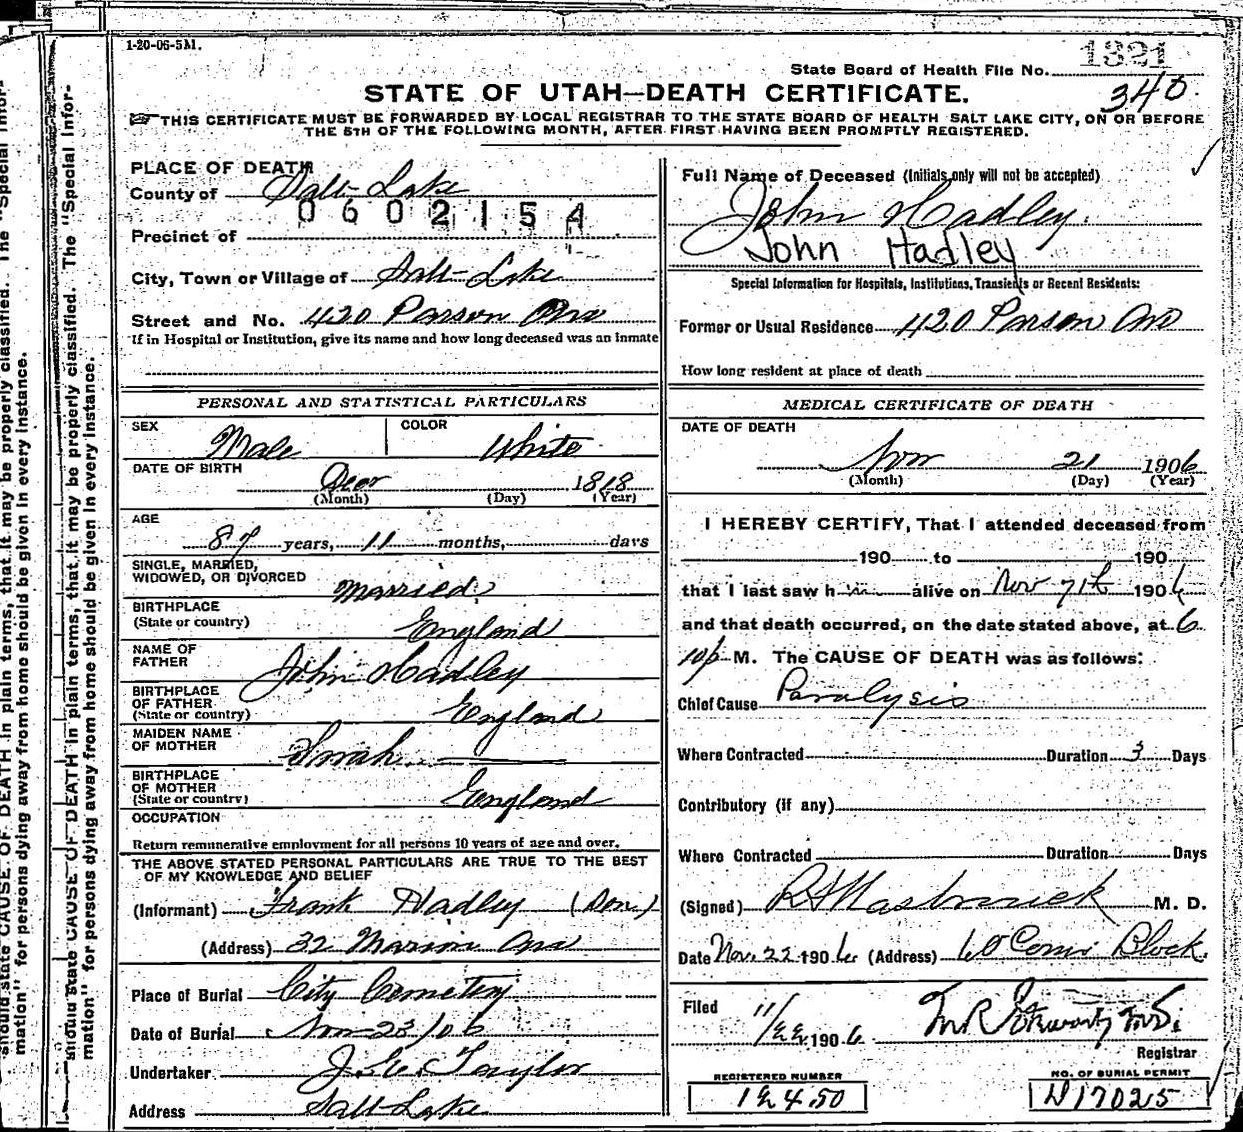 1-20-06-5M.
1321
State Board of Health File No.
340.
STATE OF UTAH—DEATH CERTIFICATE.
THIS CERTIFICATE MUST BE FORWARDED BY LOCAL REGISTRAR TO THE STATE BOARD OF HEALTH SALT LAKE CITY, ON OR BEFORE
THE 5TH OF THE FOLLOWING MONTH, AFTER FIRST HAVING BEEN PROMPTLY REGISTERED.
PLACE OF DEATH
County of Salt Lake
0602154
Precinct of
City, Town or Village of Salt Lake
Street and No. 420 Parson Ave
If in Hospital or Institution, give its name and how long deceased was an inmate
Full Name of Deceased (Initials only will not be accepted)
John Hadley.
John Hadley
Special Information for Hospitals, Institutions, Transients or Recent Residents:
Former or Usual Residence 420 Parson Ave
How long resident at place of death
PERSONAL AND STATISTICAL PARTICULARS
SEX Male COLOR White
DATE OF BIRTH
1818
(Month) (Day) (Year)
AGE
87 years, 11 months, days
SINGLE, MARRIED,
WIDOWED, OR DIVORCED Married.
BIRTHPLACE
(State or country) England
NAME OF
FATHER John Hadley
BIRTHPLACE
OF FATHER
(State or country) England
MAIDEN NAME
OF MOTHER Sarah
BIRTHPLACE
OF MOTHER
(State or country) England
OCCUPATION
Return remunerative employment for all persons 10 years of age and over.
THE ABOVE STATED PERSONAL PARTICULARS ARE TRUE TO THE BEST
OF MY KNOWLEDGE AND BELIEF
(Informant) Frank Hadley (Son)
(Address) 32 Marion Ave
Place of Burial City Cemetery
Date of Burial Nov 23/06
Undertaker J. E. Taylor
Address Salt Lake
MEDICAL CERTIFICATE OF DEATH
DATE OF DEATH
Nov 21 1906
(Month) (Day) (Year)
I HEREBY CERTIFY, That I attended deceased from
190 to 190
that I last saw h im alive on Nov 7th 1906
and that death occurred, on the date stated above, at 6
10 p M. The CAUSE OF DEATH was as follows:
Chief Cause Paralysis
Where Contracted Duration 3 Days
Contributory (if any)
Where Contracted Duration Days
(Signed) M. D.
Date Nov. 22 1906 (Address) 60 Com. Block.
Filed 11/22 1906
Registrar
REGISTERED NUMBER
12450
NO. OF BURIAL PERMIT
D17025
should state CAUSE OF DEATH in plain terms, that it may be properly classified. The "Special Infor-
mation" for persons dying away from home should be given in every instance.
should state CAUSE OF DEATH in plain terms, that it may be properly classified. The "Special Infor-
mation" for persons dying away from home should be given in every instance.